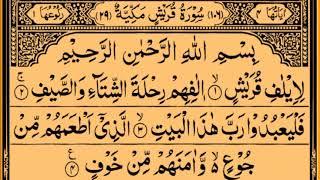 اٰیَاتُهَا ۴ (۱۰۶) سُوْرَةُ قُرَيْشٍ مَكِّيَّةٌ (۲۹) رُكُوْعُهَا ۱
بِسْمِ اللّٰهِ الرَّحْمٰنِ الرَّحِيْمِ
لِاِيْلٰفِ قُرَيْشٍ ۙ۱ اٖلٰفِهِمْ رِحْلَةَ الشِّتَآءِ وَالصَّيْفِ ۚ۲
فَلْيَعْبُدُوْا رَبَّ هٰذَا الْبَيْتِ ۙ۳ الَّذِيْٓ اَطْعَمَهُمْ مِّنْ
جُوْعٍ ۙ۬ وَّاٰمَنَهُمْ مِّنْ خَوْفٍ ۴ ع